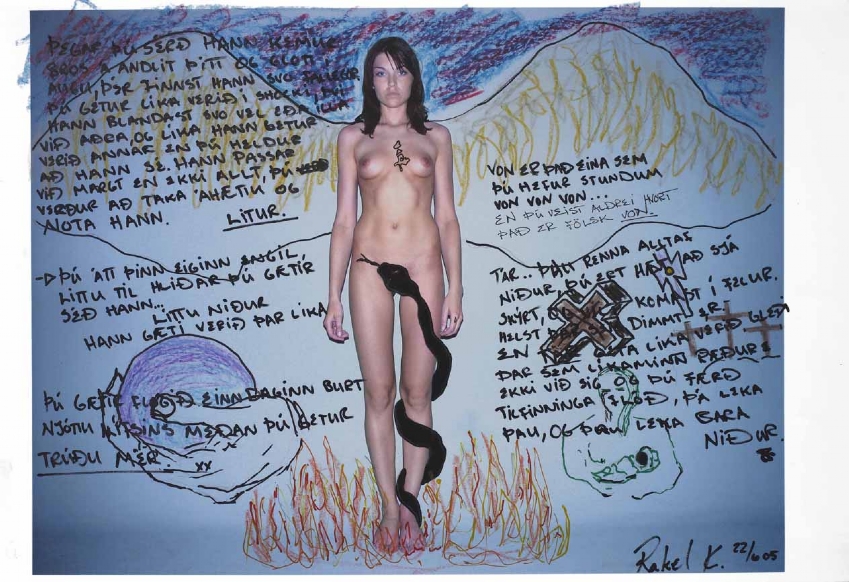 ÞEGAR ÞÚ SÉRÐ HANN KEMUR
BROS Á ANDLIT ÞITT OG GLOTT Í
AUGU, ÞÉR FINNST HANN SVO FALLEGUR
ÞÚ GETUR LIKA VERIÐ Í SHOCKI, ÞVÍ
HANN BLANDAST SVO VEL EÐA ILLA
VIÐ AÐRA, OG LIKA HANN GETUR
VERIÐ ANNAR EN ÞÚ HELDUR
AÐ HANN SÉ. HANN PASSAR
VIÐ MARGT EN EKKI ALLT, ÞÚ
VERÐUR AÐ TAKA ÁHÆTTU OG
NOTA HANN. LITUR.
ÞÚ ÁTT ÞINN EIGINN ENGIL,
LITTU TIL HLIÐAR ÞÚ GÆTIR
SÉÐ HANN...
LITTU NIÐUR
HANN GÆTI VERIÐ ÞAR LIKA
ÞÚ GÆTIR FLOGIÐ EINN DAGINN BURT
NJÓTU LÍFSINS MEÐAN ÞÚ GETUR
TRÚÐU MÉR.
XX
VON ER ÞAÐ EINA SEM
ÞÚ HEFUR STUNDUM
VON VON VON...
EN ÞÚ VEIST ALDREI HVORT
ÞAÐ ER FÖLSK VON.
TÁR.. ÞAU RENNA ALLTAF
NIÐUR, ÞÚ ERT AÐ SJÁ
SKÝRT, KOMAST Í FELUR.
HELST DIMMT ER
EN LIKA VERIÐ GLEÐI
ÞAR SEM LITARMINN RÆÐUR
EKKI VIÐ SIG OG ÞÚ FÆRÐ
TILFINNINGA FLÓÐ, ÞÁ LEKA
ÞAU, OG ÞAU LEKA BARA
NIÐUR.
Rakel K. 22/6 05